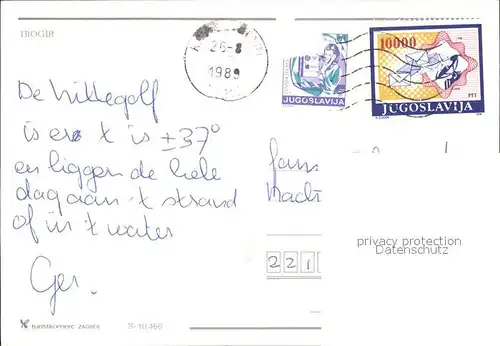 TROGIR
26-8
1989
JUGOSLAVIJA
10000
PTT
JUGOSLAVIJA
De hittegolf
is er 't is ±37°
en liggen de hele
dag aan 't strand
of in 't water
Ger.
fam
221
privacy protection
Datenschutz
turistkomerc ZAGREB
S-10466